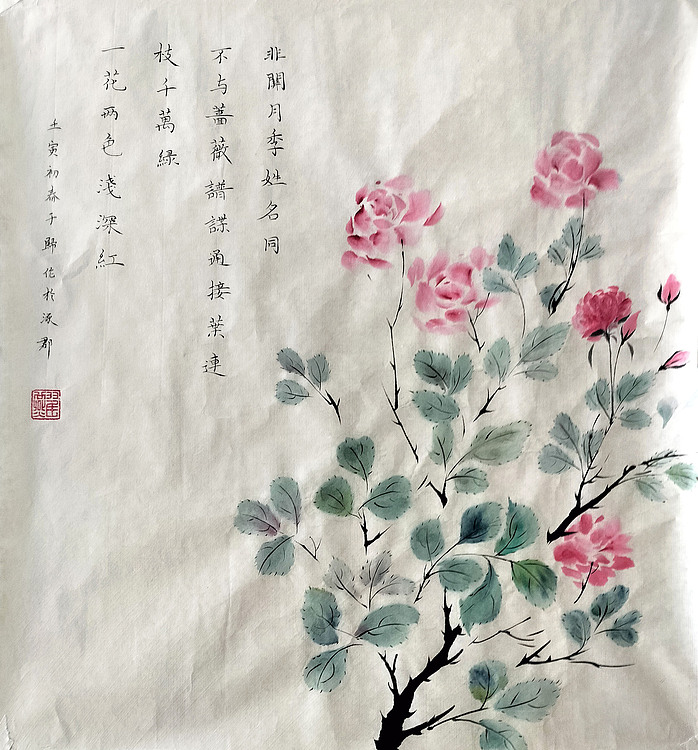 非關月季姓名同
不与薔薇譜諜通接葉連
枝千萬綠
一花兩色淺深紅
壬寅初春子歸作於涿郡